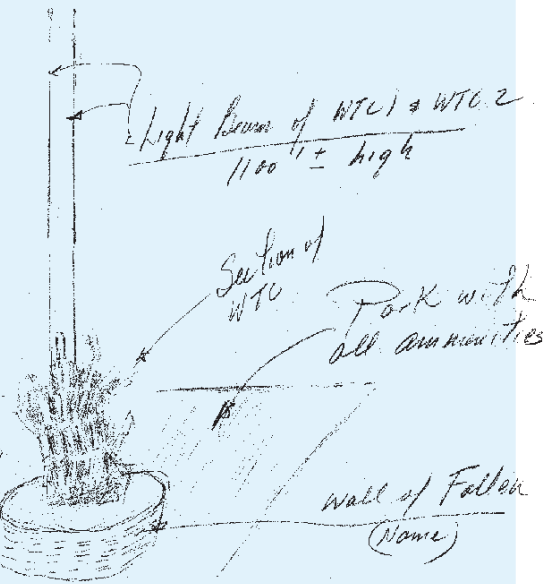 Light Beam of WTC1 & WTC2
1100' ± high
Section of
WTC
Park with
all ammunities
Wall of Fallen
(Name)